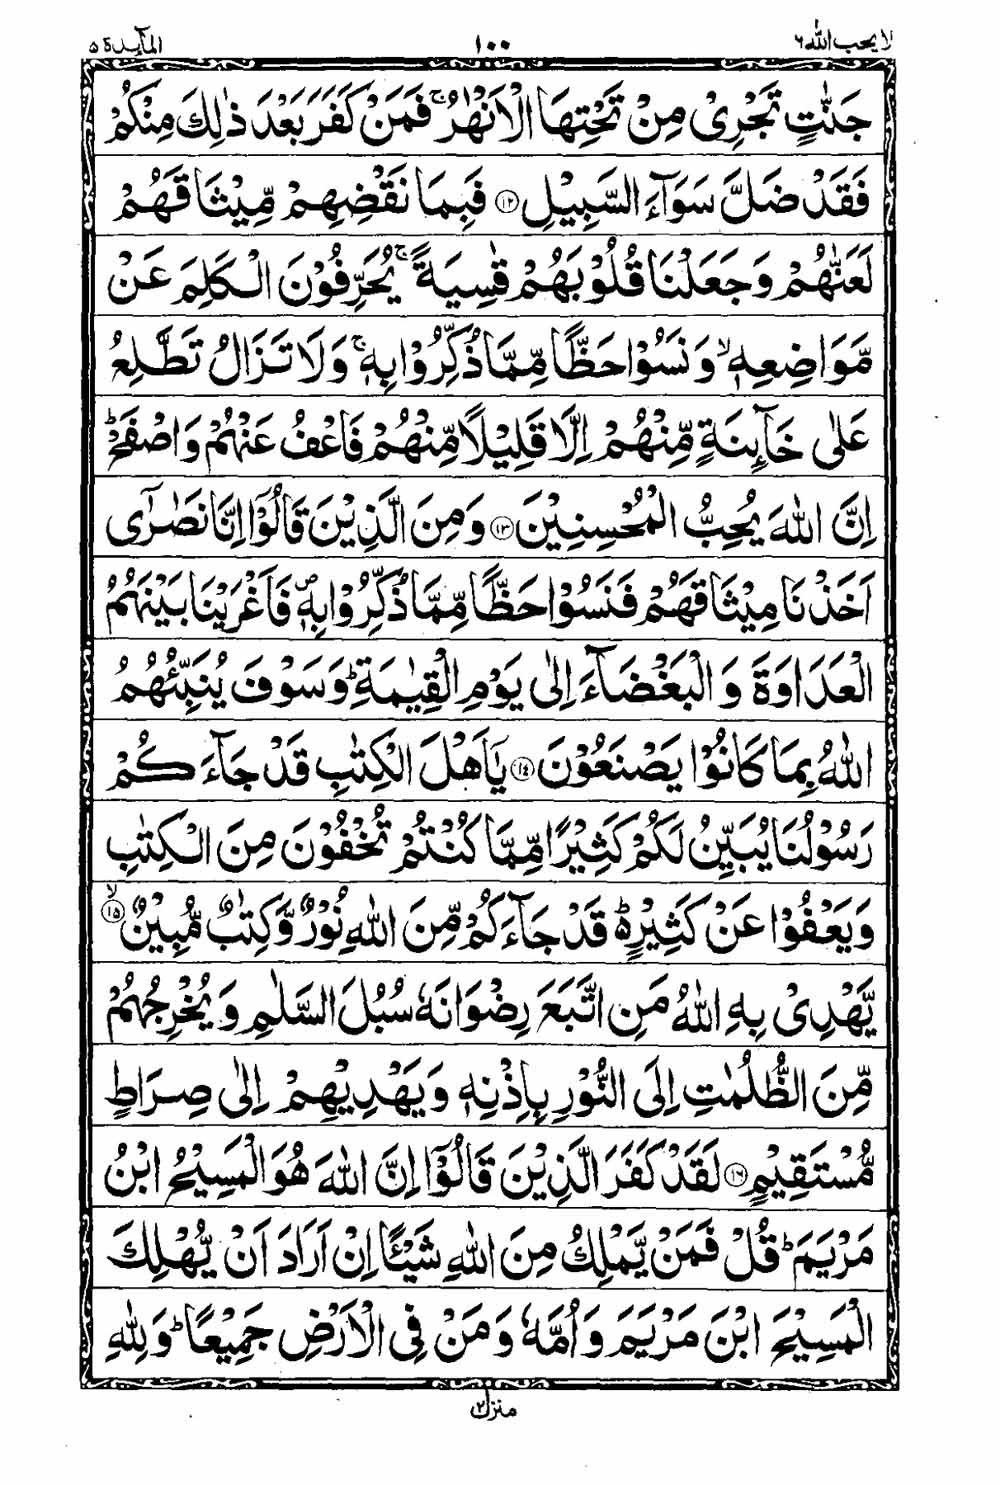 لا يحب الله ٦ ١٠٠ المآىدة ٥
جَنّٰتٍ تَجْرِىْ مِنْ تَحْتِهَا الْاَنْهٰرُ ۚ فَمَنْ كَفَرَ بَعْدَ ذٰلِكَ مِنْكُمْ
فَقَدْ ضَلَّ سَوَآءَ السَّبِيْلِ ﴿١٢﴾ فَبِمَا نَقْضِهِمْ مِّيْثَاقَهُمْ
لَعَنّٰهُمْ وَجَعَلْنَا قُلُوْبَهُمْ قٰسِيَةً ۚ يُحَرِّفُوْنَ الْكَلِمَ عَنْ
مَّوَاضِعِهٖ ۙ وَنَسُوْا حَظًّا مِّمَّا ذُكِّرُوْا بِهٖ ۚ وَلَا تَزَالُ تَطَّلِعُ
عَلٰى خَآىِٕنَةٍ مِّنْهُمْ اِلَّا قَلِيْلًا مِّنْهُمْ فَاعْفُ عَنْهُمْ وَاصْفَحْ ؕ
اِنَّ اللهَ يُحِبُّ الْمُحْسِنِيْنَ ﴿١٣﴾ وَمِنَ الَّذِيْنَ قَالُوْٓا اِنَّا نَصٰرٰٓى
اَخَذْنَا مِيْثَاقَهُمْ فَنَسُوْا حَظًّا مِّمَّا ذُكِّرُوْا بِهٖ ۪ فَاَغْرَيْنَا بَيْنَهُمُ
الْعَدَاوَةَ وَالْبَغْضَآءَ اِلٰى يَوْمِ الْقِيٰمَةِ ؕ وَسَوْفَ يُنَبِّئُهُمُ
اللهُ بِمَا كَانُوْا يَصْنَعُوْنَ ﴿١٤﴾ يٰٓاَهْلَ الْكِتٰبِ قَدْ جَآءَكُمْ
رَسُوْلُنَا يُبَيِّنُ لَكُمْ كَثِيْرًا مِّمَّا كُنْتُمْ تُخْفُوْنَ مِنَ الْكِتٰبِ
وَيَعْفُوْا عَنْ كَثِيْرٍ ؕ قَدْ جَآءَكُمْ مِّنَ اللهِ نُوْرٌ وَّكِتٰبٌ مُّبِيْنٌ ﴿١٥﴾ ۙ
يَّهْدِىْ بِهِ اللهُ مَنِ اتَّبَعَ رِضْوَانَهٗ سُبُلَ السَّلٰمِ وَيُخْرِجُهُمْ
مِّنَ الظُّلُمٰتِ اِلَى النُّوْرِ بِاِذْنِهٖ وَيَهْدِيْهِمْ اِلٰى صِرَاطٍ
مُّسْتَقِيْمٍ ﴿١٦﴾ لَقَدْ كَفَرَ الَّذِيْنَ قَالُوْٓا اِنَّ اللهَ هُوَ الْمَسِيْحُ ابْنُ
مَرْيَمَ ؕ قُلْ فَمَنْ يَّمْلِكُ مِنَ اللهِ شَيْئًا اِنْ اَرَادَ اَنْ يُّهْلِكَ
الْمَسِيْحَ ابْنَ مَرْيَمَ وَاُمَّهٗ وَمَنْ فِى الْاَرْضِ جَمِيْعًا ؕ وَلِلّٰهِ
منزل ٢